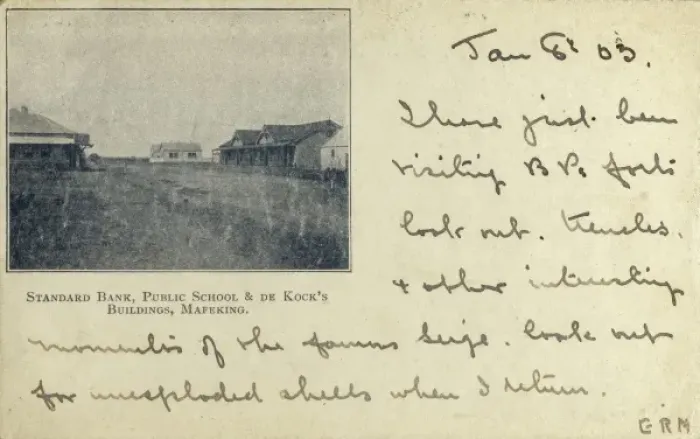 Jan 8th 03.
I have just been
visiting B Ps forts
look out. trenches.
+ other interesting
STANDARD BANK, PUBLIC SCHOOL & DE KOCK'S
BUILDINGS, MAFEKING.
momentos of the famous seige. look out
for unexploded shells when I return.
GRM